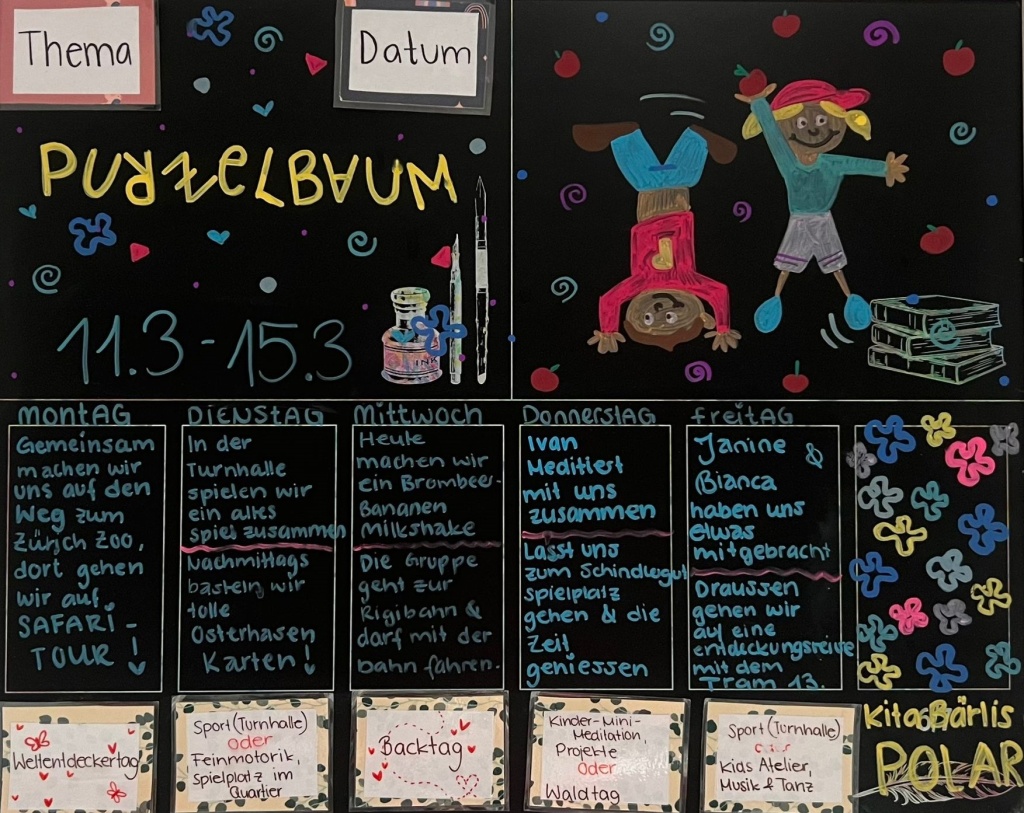 Thema
Datum
PURZELBAUM
11.3 - 15.3
P
INK
MONTAG
Gemeinsam
machen wir
uns auf den
Weg zum
Zürich Zoo,
dort gehen
wir auf
SAFARI-
TOUR!
DIENSTAG
In der
Turnhalle
spielen wir
ein altes
spiel zusammen
Nachmittags
basteln wir
tolle
Osterhasen
Karten!
Mittwoch
Heute
machen wir
ein Brombeer-
Bananen
Milkshake
Die Gruppe
geht zur
Rigibahn &
darf mit der
bahn fahren.
Donnerstag
Ivan
Meditiert
mit uns
zusammen
Lasst uns
zum Schindlergut
spielplatz
gehen & die
Zeit
geniessen
freitag
Janine &
Bianca
haben uns
etwas
mitgebracht
Draussen
gehen wir
auf eine
entdeckungsreise
mit dem
Tram 13.
Weltentdeckertag
Sport (Turnhalle)
oder
Feinmotorik,
Spielplatz im
Quartier
Backtag
Kinder-Mini-
Meditation,
Projekte
Oder
Waldtag
Sport (Turnhalle)
oder
Kids Atelier,
Musik & Tanz
Kita Bärlis
POLAR